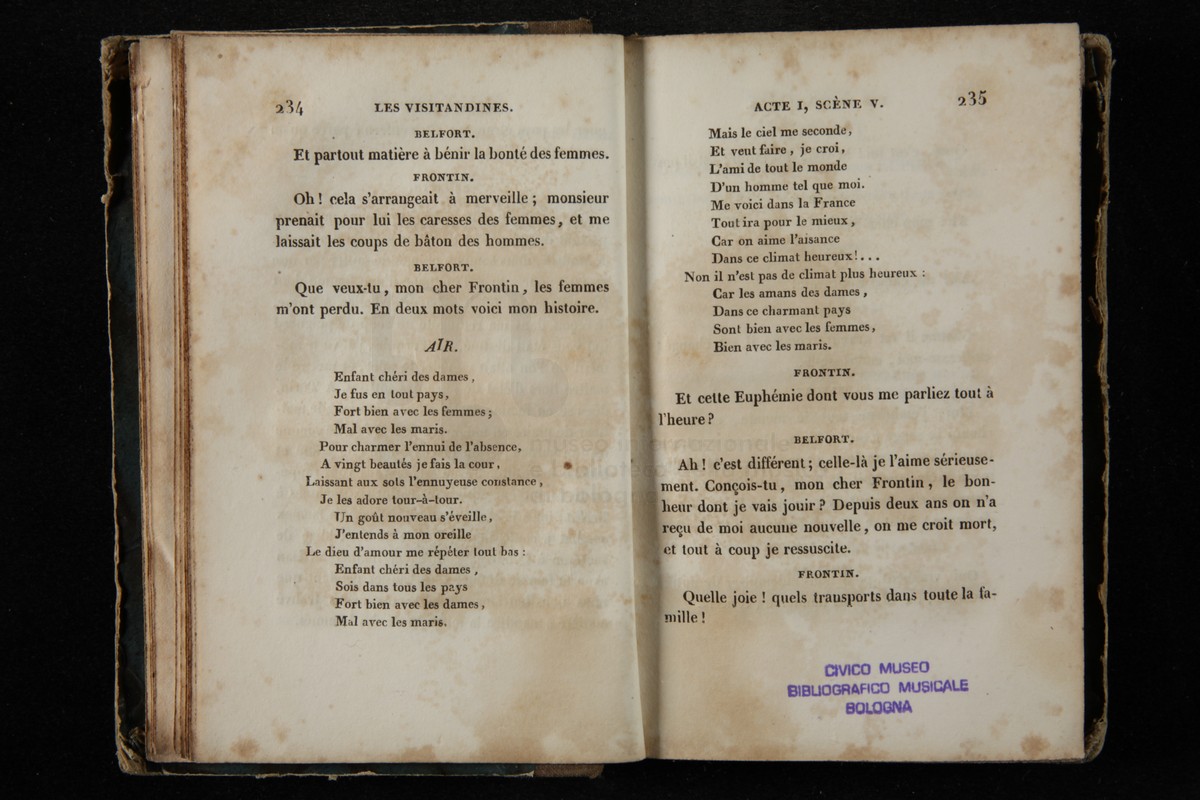 234
LES VISITANDINES.
BELFORT.
Et partout matière à bénir la bonté des femmes.
FRONTIN.
Oh ! cela s'arrangeait à merveille ; monsieur
prenait pour lui les caresses des femmes, et me
laissait les coups de bâton des hommes.
BELFORT.
Que veux-tu, mon cher Frontin, les femmes
m'ont perdu. En deux mots voici mon histoire.
AIR.
Enfant chéri des dames,
Je fus en tout pays,
Fort bien avec les femmes ;
Mal avec les maris.
Pour charmer l'ennui de l'absence,
A vingt beautés je fais la cour,
Laissant aux sots l'ennuyeuse constance,
Je les adore tour-à-tour.
Un goût nouveau s'éveille,
J'entends à mon oreille
Le dieu d'amour me répéter tout bas :
Enfant chéri des dames,
Sois dans tous les pays
Fort bien avec les dames,
Mal avec les maris.
ACTE I, SCÈNE V.
235
Mais le ciel me seconde,
Et veut faire, je croi,
L'ami de tout le monde
D'un homme tel que moi.
Me voici dans la France
Tout ira pour le mieux,
Car on aime l'aisance
Dans ce climat heureux !...
Non il n'est pas de climat plus heureux :
Car les amans des dames,
Dans ce charmant pays
Sont bien avec les femmes,
Bien avec les maris.
FRONTIN.
Et cette Euphémie dont vous me parliez tout à
l'heure ?
BELFORT.
Ah ! c'est différent ; celle-là je l'aime sérieuse-
ment. Conçois-tu, mon cher Frontin, le bon-
heur dont je vais jouir ? Depuis deux ans on n'a
reçu de moi aucune nouvelle, on me croit mort,
et tout à coup je ressuscite.
FRONTIN.
Quelle joie ! quels transports dans toute la fa-
mille !
CIVICO MUSEO
BIBLIOGRAFICO MUSICALE
BOLOGNA